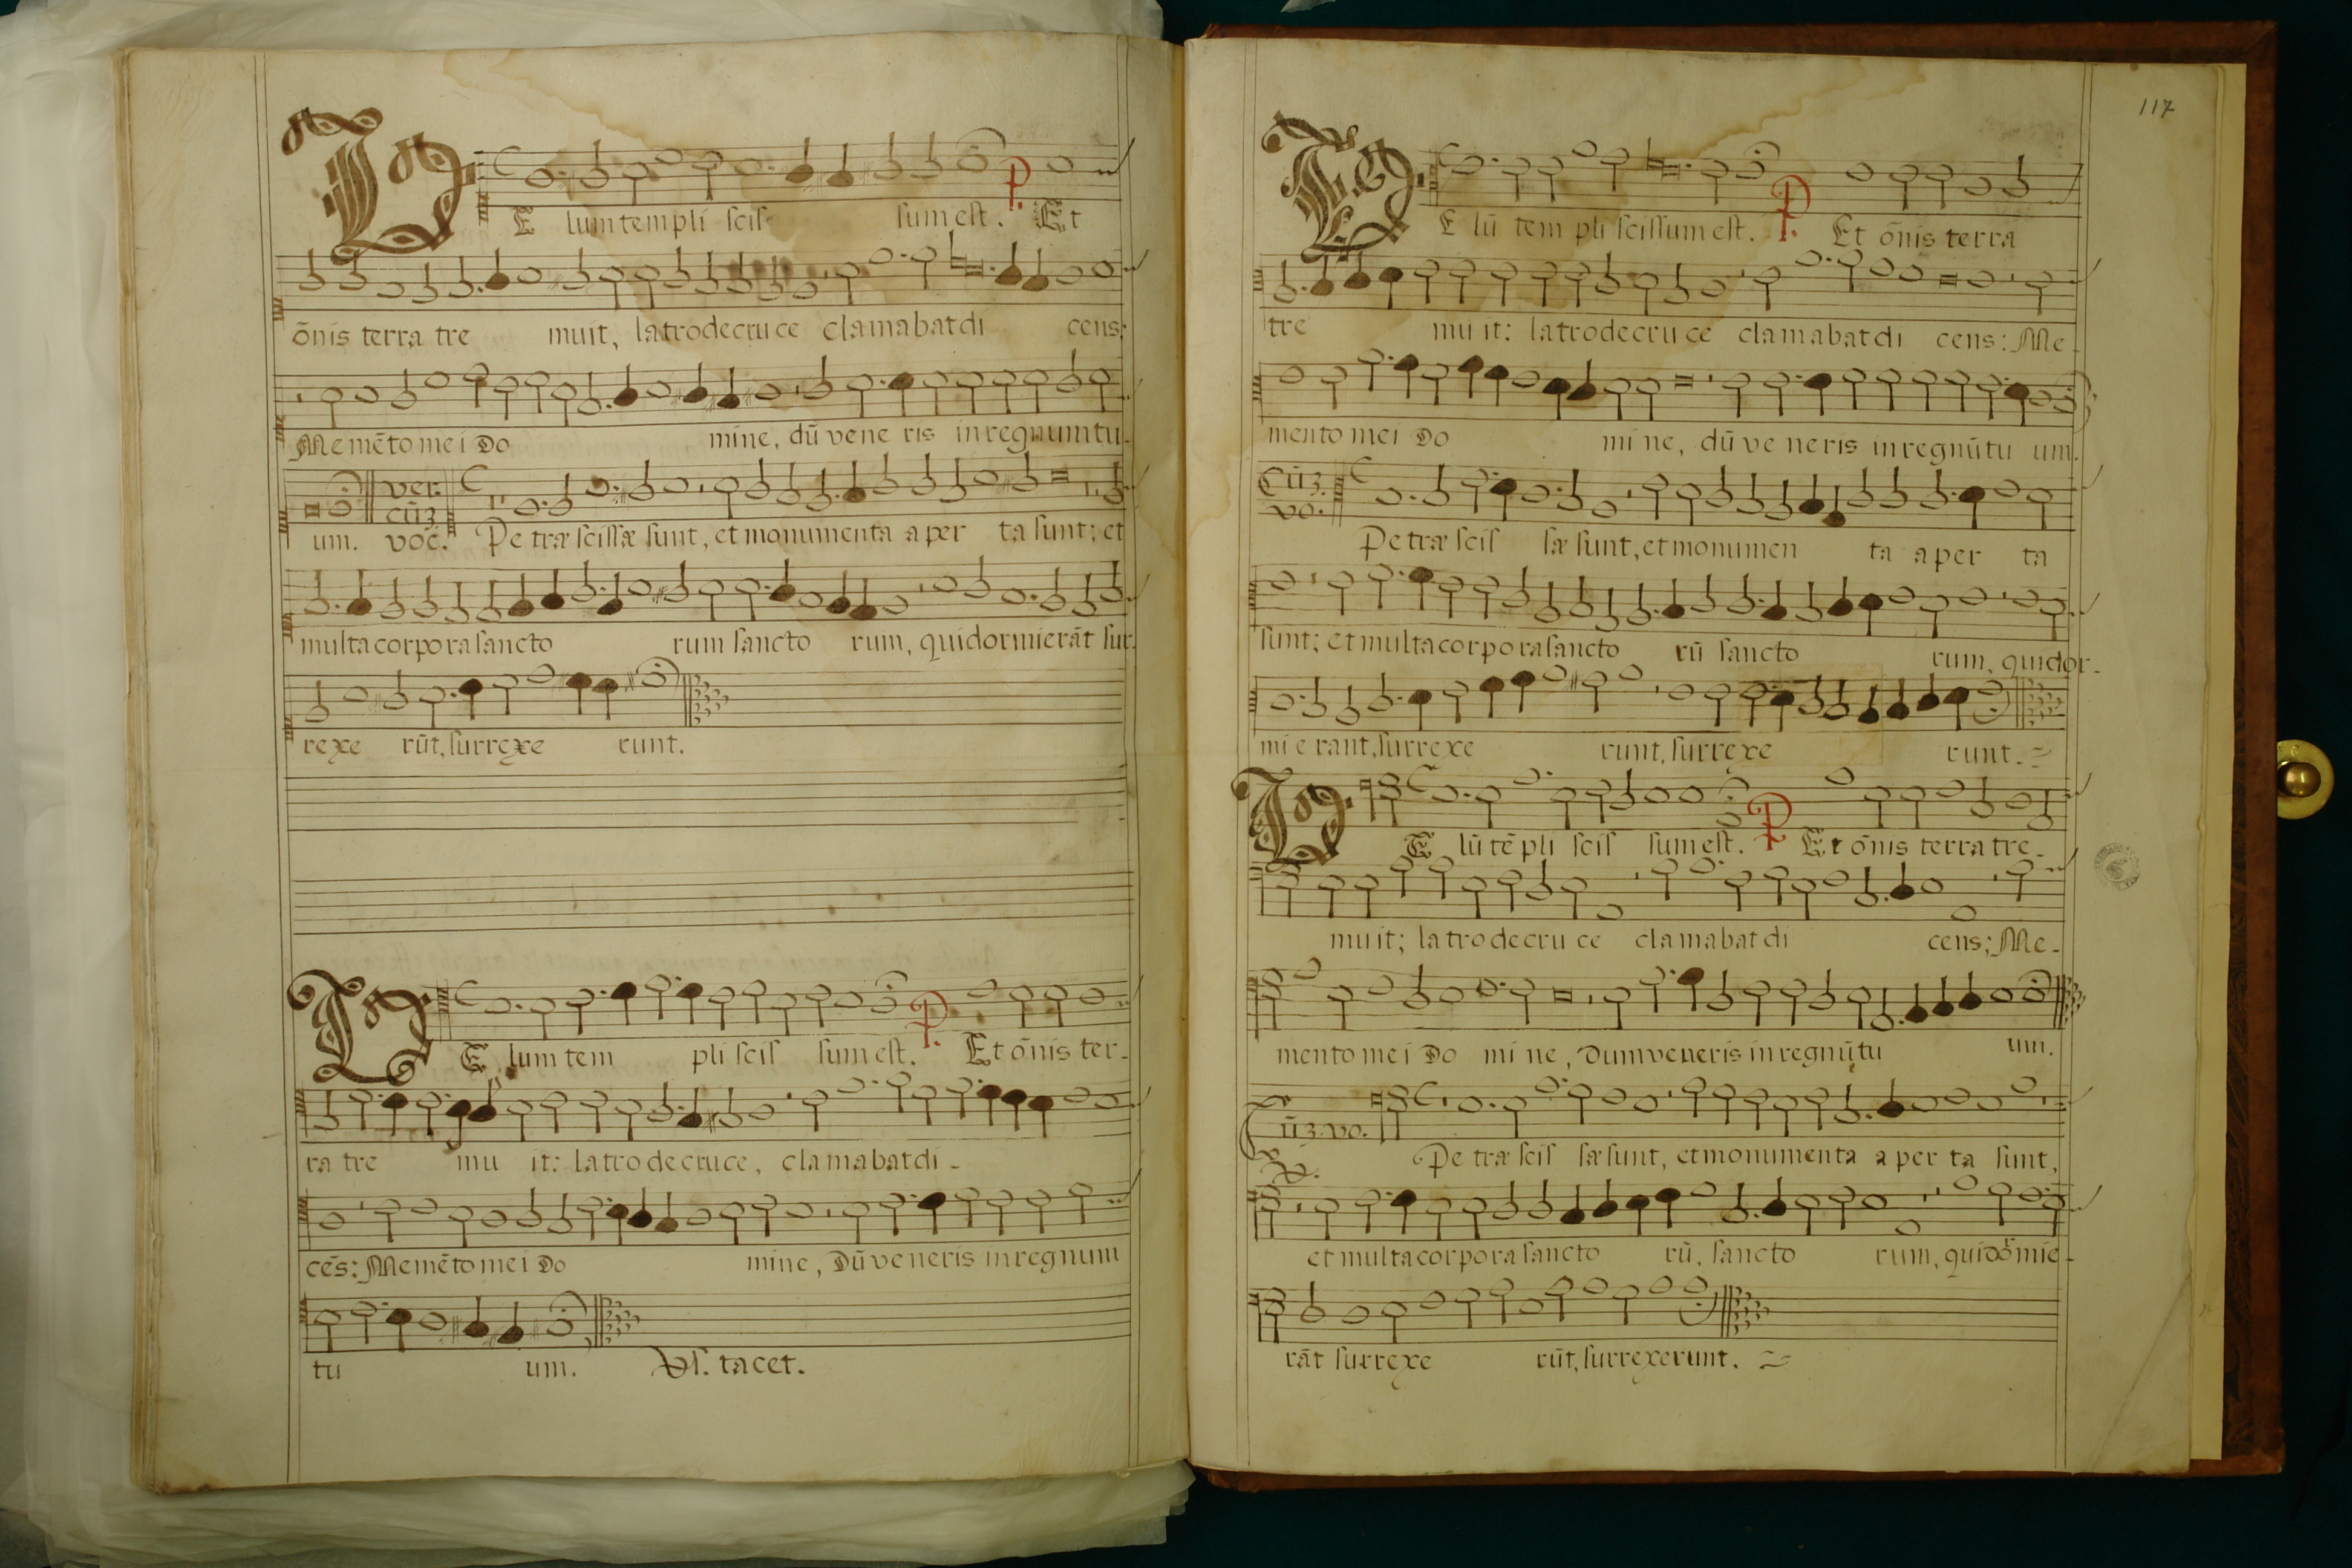 VE lum templi scis sum est. P. Et
ōnis terra tre muit, latro de cru ce clamabat di cens:
Me mēto mei Do mine, dū vene ris in regnum tu-
um. ver. cūz voc. Pe træ scissæ sunt, et monumenta a per ta sunt; et
multa corpora sancto rum sancto rum, qui dormierāt sur-
rexe rūt, surrexe runt.
VE lum tem pli scis sum est. P. Et ōnis ter-
ra tre mu it: latro de cruce, clamabat di-
cēs: Memēto mei Do mine, Dū veneris in regnum
tu um. Vs. tacet.
117
VE lū tem pli scissum est. P. Et ōnis terra
tre mu it: latro de cru ce clamabat di cens: Me-
mento mei Do mi ne, dū ve neris in regnū tu um.
Cūz. vo. Pe træ scis sæ sunt, et monumen ta a per ta
sunt; et multa corpora sancto rū sancto rum, qui dor-
mi e rant, surrexe runt, surrexe runt.
VE lū tē pli scis sum est. P Et ōnis terra tre-
muit; latro de cru ce clamabat di cens; Me-
mento mei Do mi ne, Dum veneris in regnū tu um.
Cūz. vo. Pe træ scis sæ sunt, et monumenta a per ta sunt,
et multa corpora sancto rū, sancto rum, qui dormie-
rāt surrexe rūt, surrexerunt.